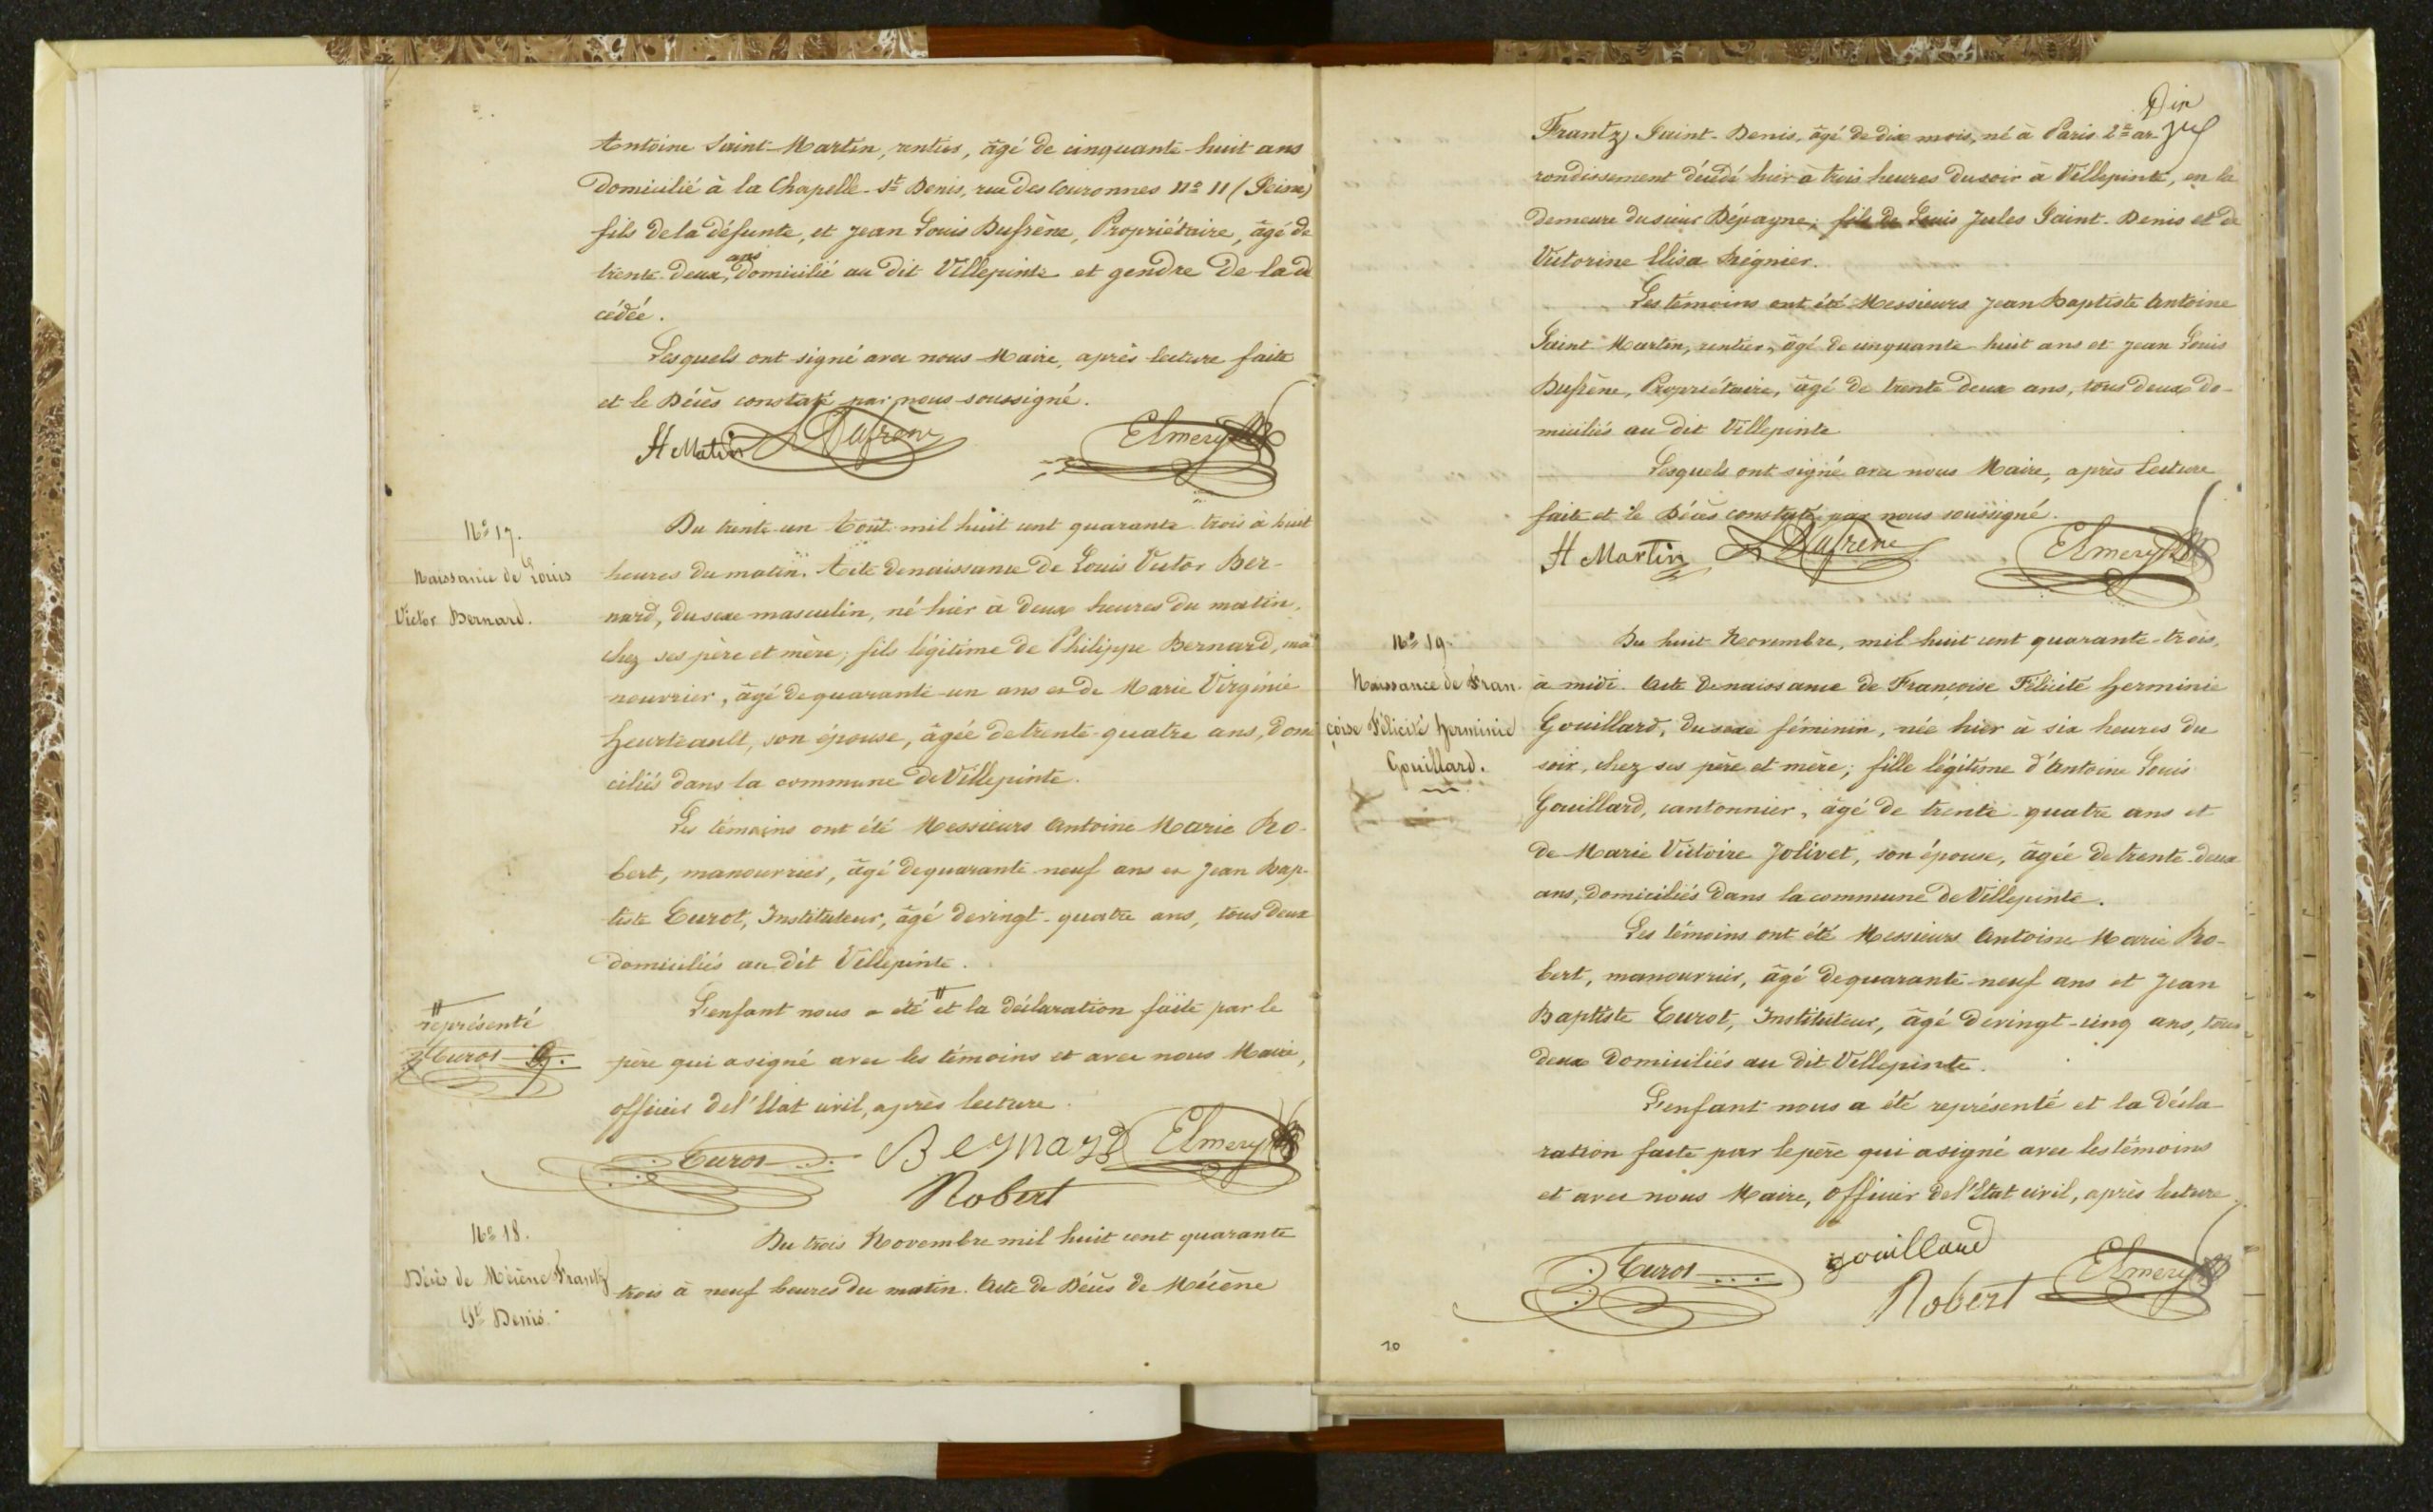 Antoine Saint-Martin, rentier, âgé de cinquante-huit ans
domicilié à la Chapelle-St Denis, rue des Couronnes No 11 (Seine)
fils de la défunte, et Jean Louis Dufrène, Propriétaire, âgé de
trente-deux ans, domicilié au dit Villepinte et gendre de la dé
cédée.
Lesquels ont signé avec nous Maire, après lecture faite
et le Décès constaté par nous soussigné.
H Matin L Dufrene Elmery
No 17.
Naissance de Louis
Victor Bernard.
Du trente-un Août mil huit cent quarante-trois à huit
heures du matin. Acte de naissance de Louis Victor Ber-
nard, du sexe masculin, né hier à deux heures du matin,
chez ses père et mère; fils légitime de Philippe Bernard, ma
nouvrier, âgé de quarante-un ans et de Marie Virginie
Heurteault, son épouse, âgée de trente-quatre ans, domi
ciliés dans la commune de Villepinte.
Les témoins ont été Messieurs Antoine Marie Ro-
bert, manouvrier, âgé de quarante-neuf ans et Jean Bap-
tiste Curot, Instituteur, âgé de vingt-quatre ans, tous deux
domiciliés au dit Villepinte.
L'enfant nous a été # et la déclaration faite par le
père qui a signé avec les témoins et avec nous Maire,
officier de l'Etat civil, après lecture.
#
représenté
Curot
Curot Bernard Elmery
Robert
No 18.
Décès de Mécène Frantz
St Denis.
Du trois Novembre mil huit cent quarante
trois à neuf heures du matin. Acte de Décès de Mécène
Dix
Frantz Saint-Denis, âgé de dix mois, né à Paris 2e ar
rondissement décédé hier à trois heures du soir à Villepinte, en la
demeure du sieur Dépagne; fils de Louis Jules Saint-Denis et de
Victorine Elisa Régnier.
Les témoins ont été Messieurs Jean Baptiste Antoine
Saint-Martin, rentier, âgé de cinquante-huit ans et Jean Louis
Dufrène, Propriétaire, âgé de trente-deux ans, tous deux do-
miciliés au dit Villepinte
Lesquels ont signé avec nous Maire, après lecture
faite et le Décès constaté par nous soussigné.
H Martin L Dufrene Elmery
No 19.
Naissance de Fran-
çoise Félicité Herminie
Gouillard.
Du huit Novembre, mil huit cent quarante-trois,
à midi. Acte de naissance de Françoise Félicité Herminie
Gouillard, du sexe féminin, née hier à six heures du
soir, chez ses père et mère; fille légitime d'Antoine Louis
Gouillard, cantonnier, âgé de trente-quatre ans et
de Marie Victoire Jolivet, son épouse, âgée de trente-deux
ans, domiciliés dans la commune de Villepinte.
Les témoins ont été Messieurs Antoine Marie Ro-
bert, manouvrier, âgé de quarante-neuf ans et Jean
Baptiste Curot, Instituteur, âgé de vingt-cinq ans, tous
deux domiciliés au dit Villepinte.
L'enfant nous a été représenté et la décla
ration faite par le père qui a signé avec les témoins
et avec nous Maire, officier de l'Etat civil, après lecture.
Curot gouillard
Robert Elmery
10